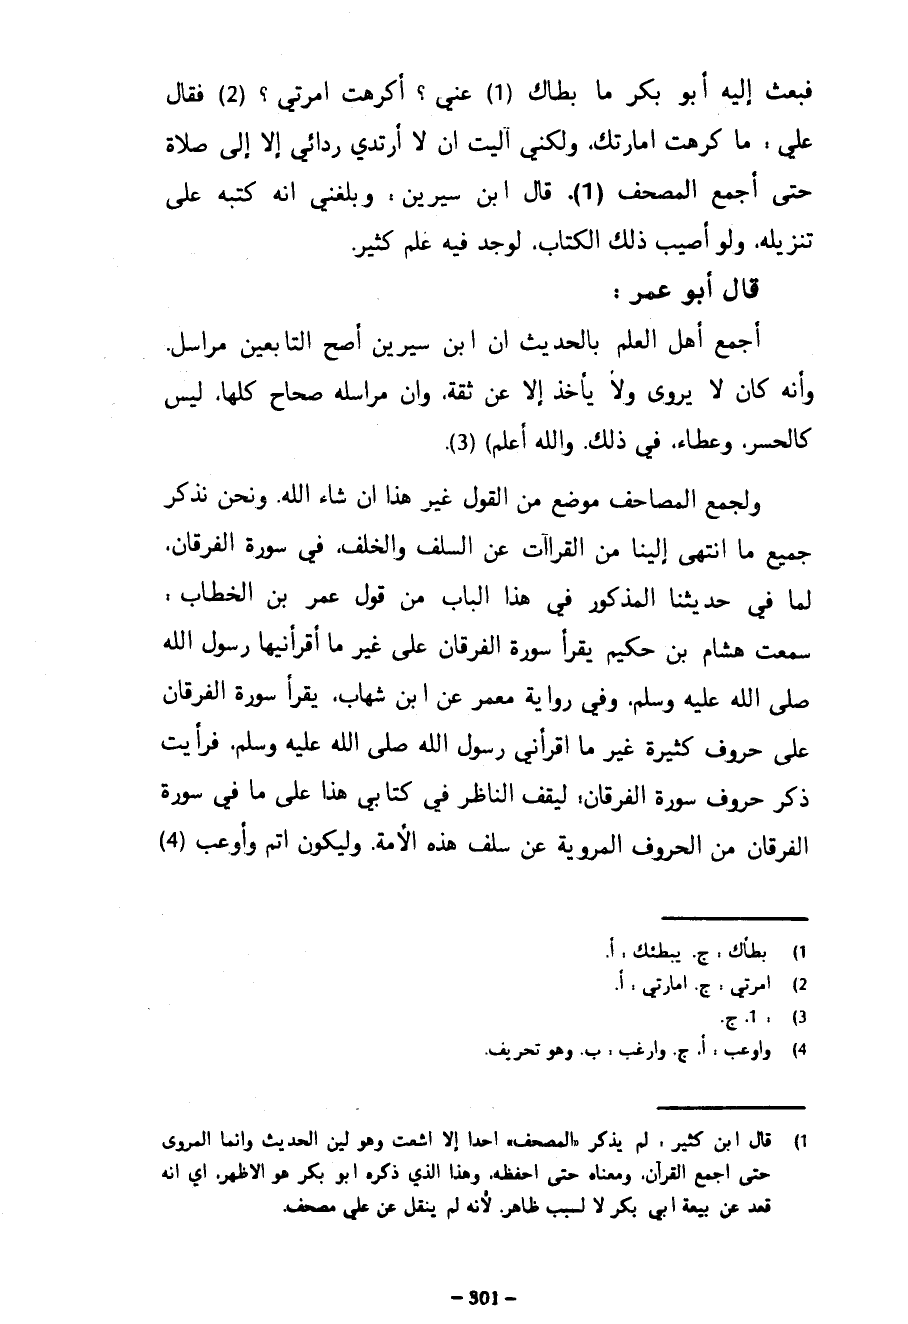 فبعث إليه أبو بكر ما بطاك (1) عني ؟ أكرهت امرتي ؟ (2) فقال
علي : ما كرهت امارتك، ولكني آليت ان لا أرتدي ردائي إلا إلى صلاة
حتى أجمع المصحف (1). قال ابن سيرين : وبلغني انه كتبه على
تنزيله، ولو أصيب ذلك الكتاب، لوجد فيه علم كثير.
قال أبو عمر :
أجمع أهل العلم بالحديث ان ابن سيرين أصح التابعين مراسل،
وأنه كان لا يروى ولا يأخذ إلا عن ثقة، وان مراسله صحاح كلها، ليس
كالحسن، وعطاء، في ذلك. والله أعلم) (3).
ولجمع المصاحف موضع من القول غير هذا ان شاء الله. ونحن نذكر
جميع ما انتهى إلينا من القراآت عن السلف والخلف، في سورة الفرقان،
لما في حديثنا المذكور في هذا الباب من قول عمر بن الخطاب :
سمعت هشام بن حكيم يقرأ سورة الفرقان على غير ما أقرأنيها رسول الله
صلى الله عليه وسلم، وفي رواية معمر عن ابن شهاب، يقرأ سورة الفرقان
على حروف كثيرة غير ما اقرأني رسول الله صلى الله عليه وسلم، فرأيت
ذكر حروف سورة الفرقان؛ ليقف الناظر في كتابي هذا على ما في سورة
الفرقان من الحروف المروية عن سلف هذه الأمة، وليكون اتم وأوعب (4)
1) بطأك : ج. يبطئك : أ.
2) امرتي : ج. امارتي : أ.
3) : 1. ج.
4) واوعب : أ. ج. وارغب : ب. وهو تحريف.
1) قال ابن كثير : لم يذكر «المصحف» احدا إلا اشعت وهو لين الحديث وانما المروى
حتى اجمع القرآن، ومعناه حتى احفظه، وهذا الذي ذكره ابو بكر هو الاظهر، اي انه
قعد عن بيعة ابي بكر لا لسبب ظاهر، لأنه لم ينقل عن علي مصحف.
– 301 –